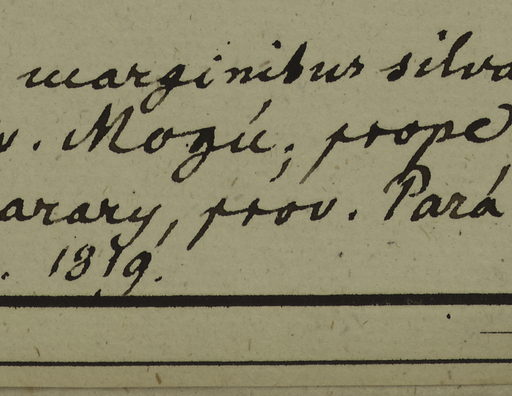 marginibus silva
v. Mogú; prope
arary, prov. Pará
. 1819.